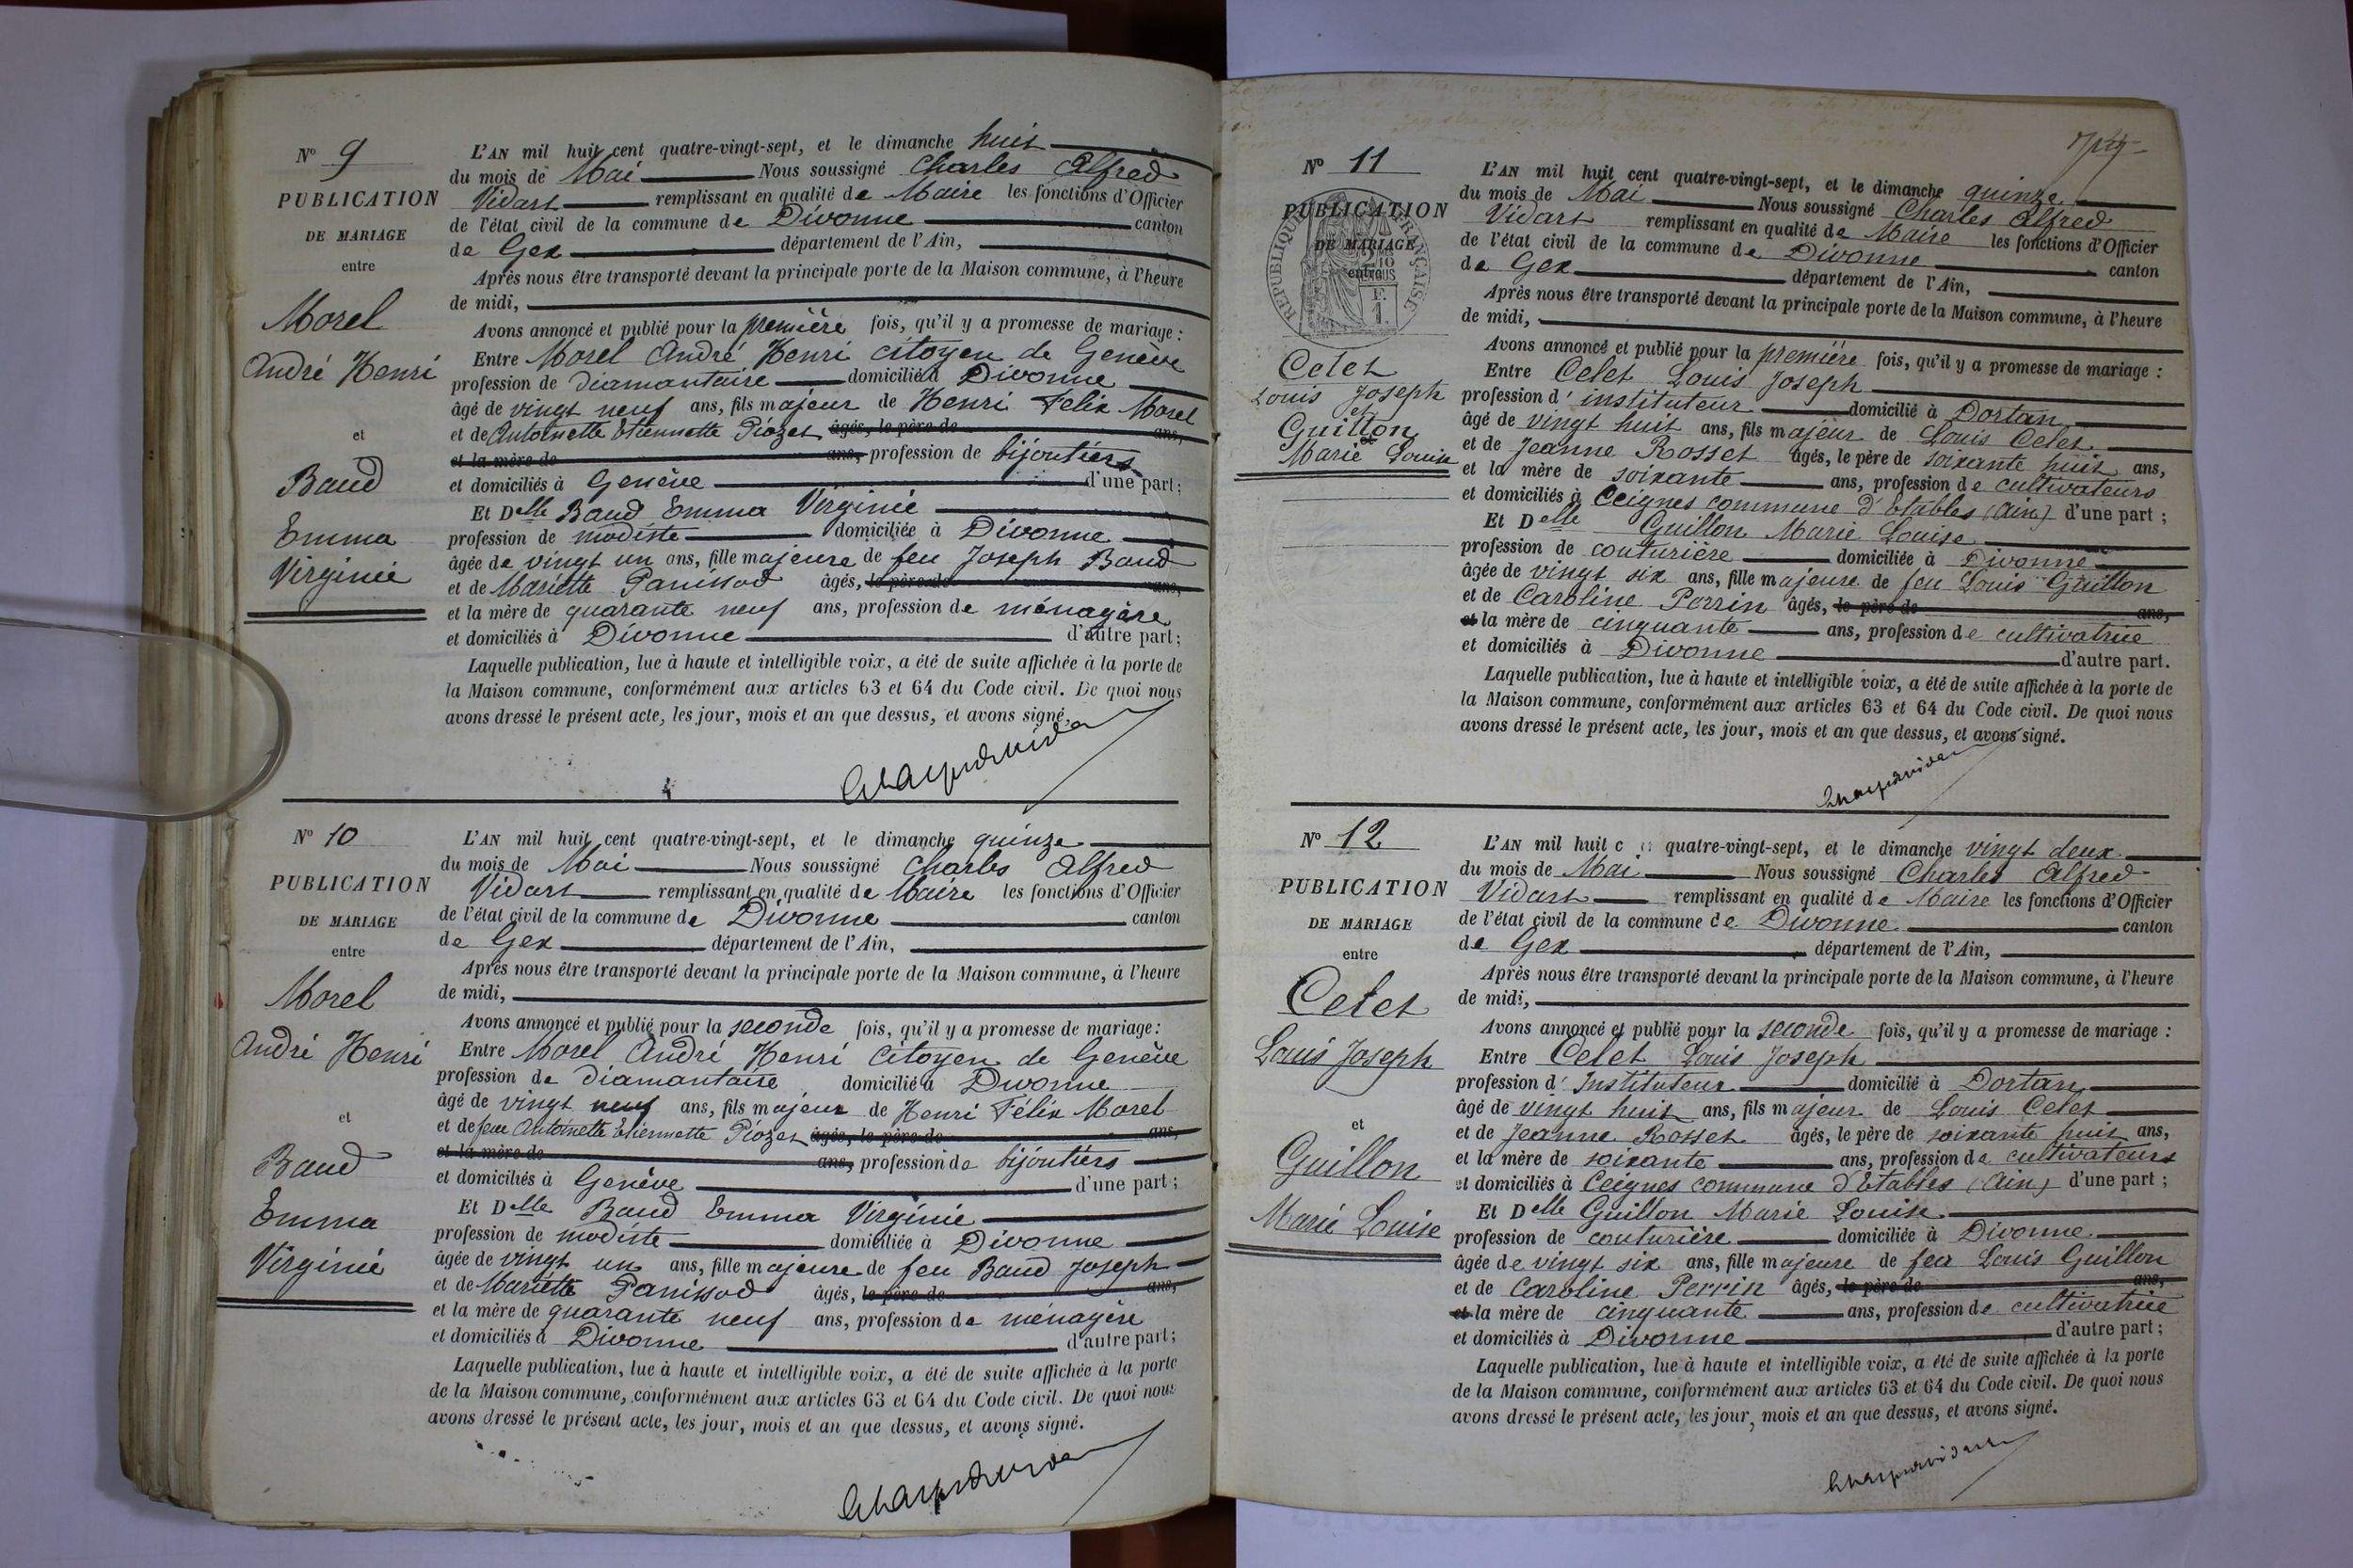 N° 9
PUBLICATION
DE MARIAGE
entre
Morel
André Henri
et
Baud
Emma
Virginie
L'AN mil huit cent quatre-vingt-sept, et le dimanche huit
du mois de Mai Nous soussigné Charles Alfred
Vidart remplissant en qualité de Maire les fonctions d'Officier
de l'état civil de la commune de Divonne canton
de Gex département de l'Ain,
Après nous être transporté devant la principale porte de la Maison commune, à l'heure
de midi,
Avons annoncé et publié pour la première fois, qu'il y a promesse de mariage :
Entre Morel André Henri citoyen de Genève
profession de diamantaire domicilié à Divonne
âgé de vingt neuf ans, fils majeur de Henri Félix Morel
et de Antoinette Etiennette Piozet âgés, le père de ans,
et la mère de ans, profession de bijoutiers
et domiciliés à Genève d'une part ;
Et Delle Baud Emma Virginie
profession de modiste domiciliée à Divonne
âgée de vingt un ans, fille majeure de feu Joseph Baud
et de Mariette Panissod âgés, le père de ans,
et la mère de quarante neuf ans, profession de ménagère
et domiciliés à Divonne d'autre part ;
Laquelle publication, lue à haute et intelligible voix, a été de suite affichée à la porte de
la Maison commune, conformément aux articles 63 et 64 du Code civil. De quoi nous
avons dressé le présent acte, les jour, mois et an que dessus, et avons signé.
N° 10
PUBLICATION
DE MARIAGE
entre
Morel
André Henri
et
Baud
Emma
Virginie
L'AN mil huit cent quatre-vingt-sept, et le dimanche quinze
du mois de Mai Nous soussigné Charles Alfred
Vidart remplissant en qualité de Maire les fonctions d'Officier
de l'état civil de la commune de Divonne canton
de Gex département de l'Ain,
Après nous être transporté devant la principale porte de la Maison commune, à l'heure
de midi,
Avons annoncé et publié pour la seconde fois, qu'il y a promesse de mariage :
Entre Morel André Henri citoyen de Genève
profession de diamantaire domicilié à Divonne
âgé de vingt neuf ans, fils majeur de Henri Félix Morel
et de feue Antoinette Etiennette Piozet âgés, le père de ans,
et la mère de ans, profession de bijoutiers
et domiciliés à Genève d'une part ;
Et Delle Baud Emma Virginie
profession de modiste domiciliée à Divonne
âgée de vingt un ans, fille majeure de feu Baud Joseph
et de Mariette Panissod âgés, le père de ans,
et la mère de quarante neuf ans, profession de ménagère
et domiciliés à Divonne d'autre part ;
Laquelle publication, lue à haute et intelligible voix, a été de suite affichée à la porte
de la Maison commune, conformément aux articles 63 et 64 du Code civil. De quoi nous
avons dressé le présent acte, les jour, mois et an que dessus, et avons signé.
N° 11
PUBLICATION
DE MARIAGE
entre
RÉPUBLIQUE FRANÇAISE
Celet
Louis Joseph
et
Guillon
Marie Louise
L'AN mil huit cent quatre-vingt-sept, et le dimanche quinze
du mois de Mai Nous soussigné Charles Alfred
Vidart remplissant en qualité de Maire les fonctions d'Officier
de l'état civil de la commune de Divonne canton
de Gex département de l'Ain,
Après nous être transporté devant la principale porte de la Maison commune, à l'heure
de midi,
Avons annoncé et publié pour la première fois, qu'il y a promesse de mariage :
Entre Celet Louis Joseph
profession d'instituteur domicilié à Dortan
âgé de vingt huit ans, fils majeur de Louis Celet
et de Jeanne Rosset âgés, le père de soixante huit ans,
et la mère de soixante ans, profession de cultivateurs
et domiciliés à Ceignes commune d'Etables (Ain) d'une part ;
Et Delle Guillon Marie Louise
profession de couturière domiciliée à Divonne
âgée de vingt six ans, fille majeure de feu Louis Guillon
et de Caroline Perrin âgés, le père de ans,
et la mère de cinquante ans, profession de cultivatrice
et domiciliés à Divonne d'autre part.
Laquelle publication, lue à haute et intelligible voix, a été de suite affichée à la porte de
la Maison commune, conformément aux articles 63 et 64 du Code civil. De quoi nous
avons dressé le présent acte, les jour, mois et an que dessus, et avons signé.
N° 12
PUBLICATION
DE MARIAGE
entre
Celet
Louis Joseph
et
Guillon
Marie Louise
L'AN mil huit c quatre-vingt-sept, et le dimanche vingt deux
du mois de Mai Nous soussigné Charles Alfred
Vidart remplissant en qualité de Maire les fonctions d'Officier
de l'état civil de la commune de Divonne canton
de Gex département de l'Ain,
Après nous être transporté devant la principale porte de la Maison commune, à l'heure
de midi,
Avons annoncé et publié pour la seconde fois, qu'il y a promesse de mariage :
Entre Celet Louis Joseph
profession d'Instituteur domicilié à Dortan
âgé de vingt huit ans, fils majeur de Louis Celet
et de Jeanne Rosset âgés, le père de soixante huit ans,
et la mère de soixante ans, profession de cultivateurs
et domiciliés à Ceignes commune d'Etables (Ain) d'une part ;
Et Delle Guillon Marie Louise
profession de couturière domiciliée à Divonne
âgée de vingt six ans, fille majeure de feu Louis Guillon
et de Caroline Perrin âgés, le père de ans,
et la mère de cinquante ans, profession de cultivatrice
et domiciliés à Divonne d'autre part ;
Laquelle publication, lue à haute et intelligible voix, a été de suite affichée à la porte
de la Maison commune, conformément aux articles 63 et 64 du Code civil. De quoi nous
avons dressé le présent acte, les jour, mois et an que dessus, et avons signé.